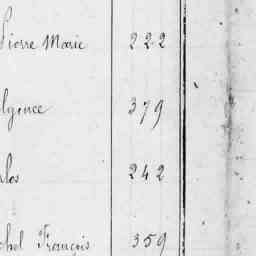 Pierre Marie 222
lgence 379
los 242
chel François 359